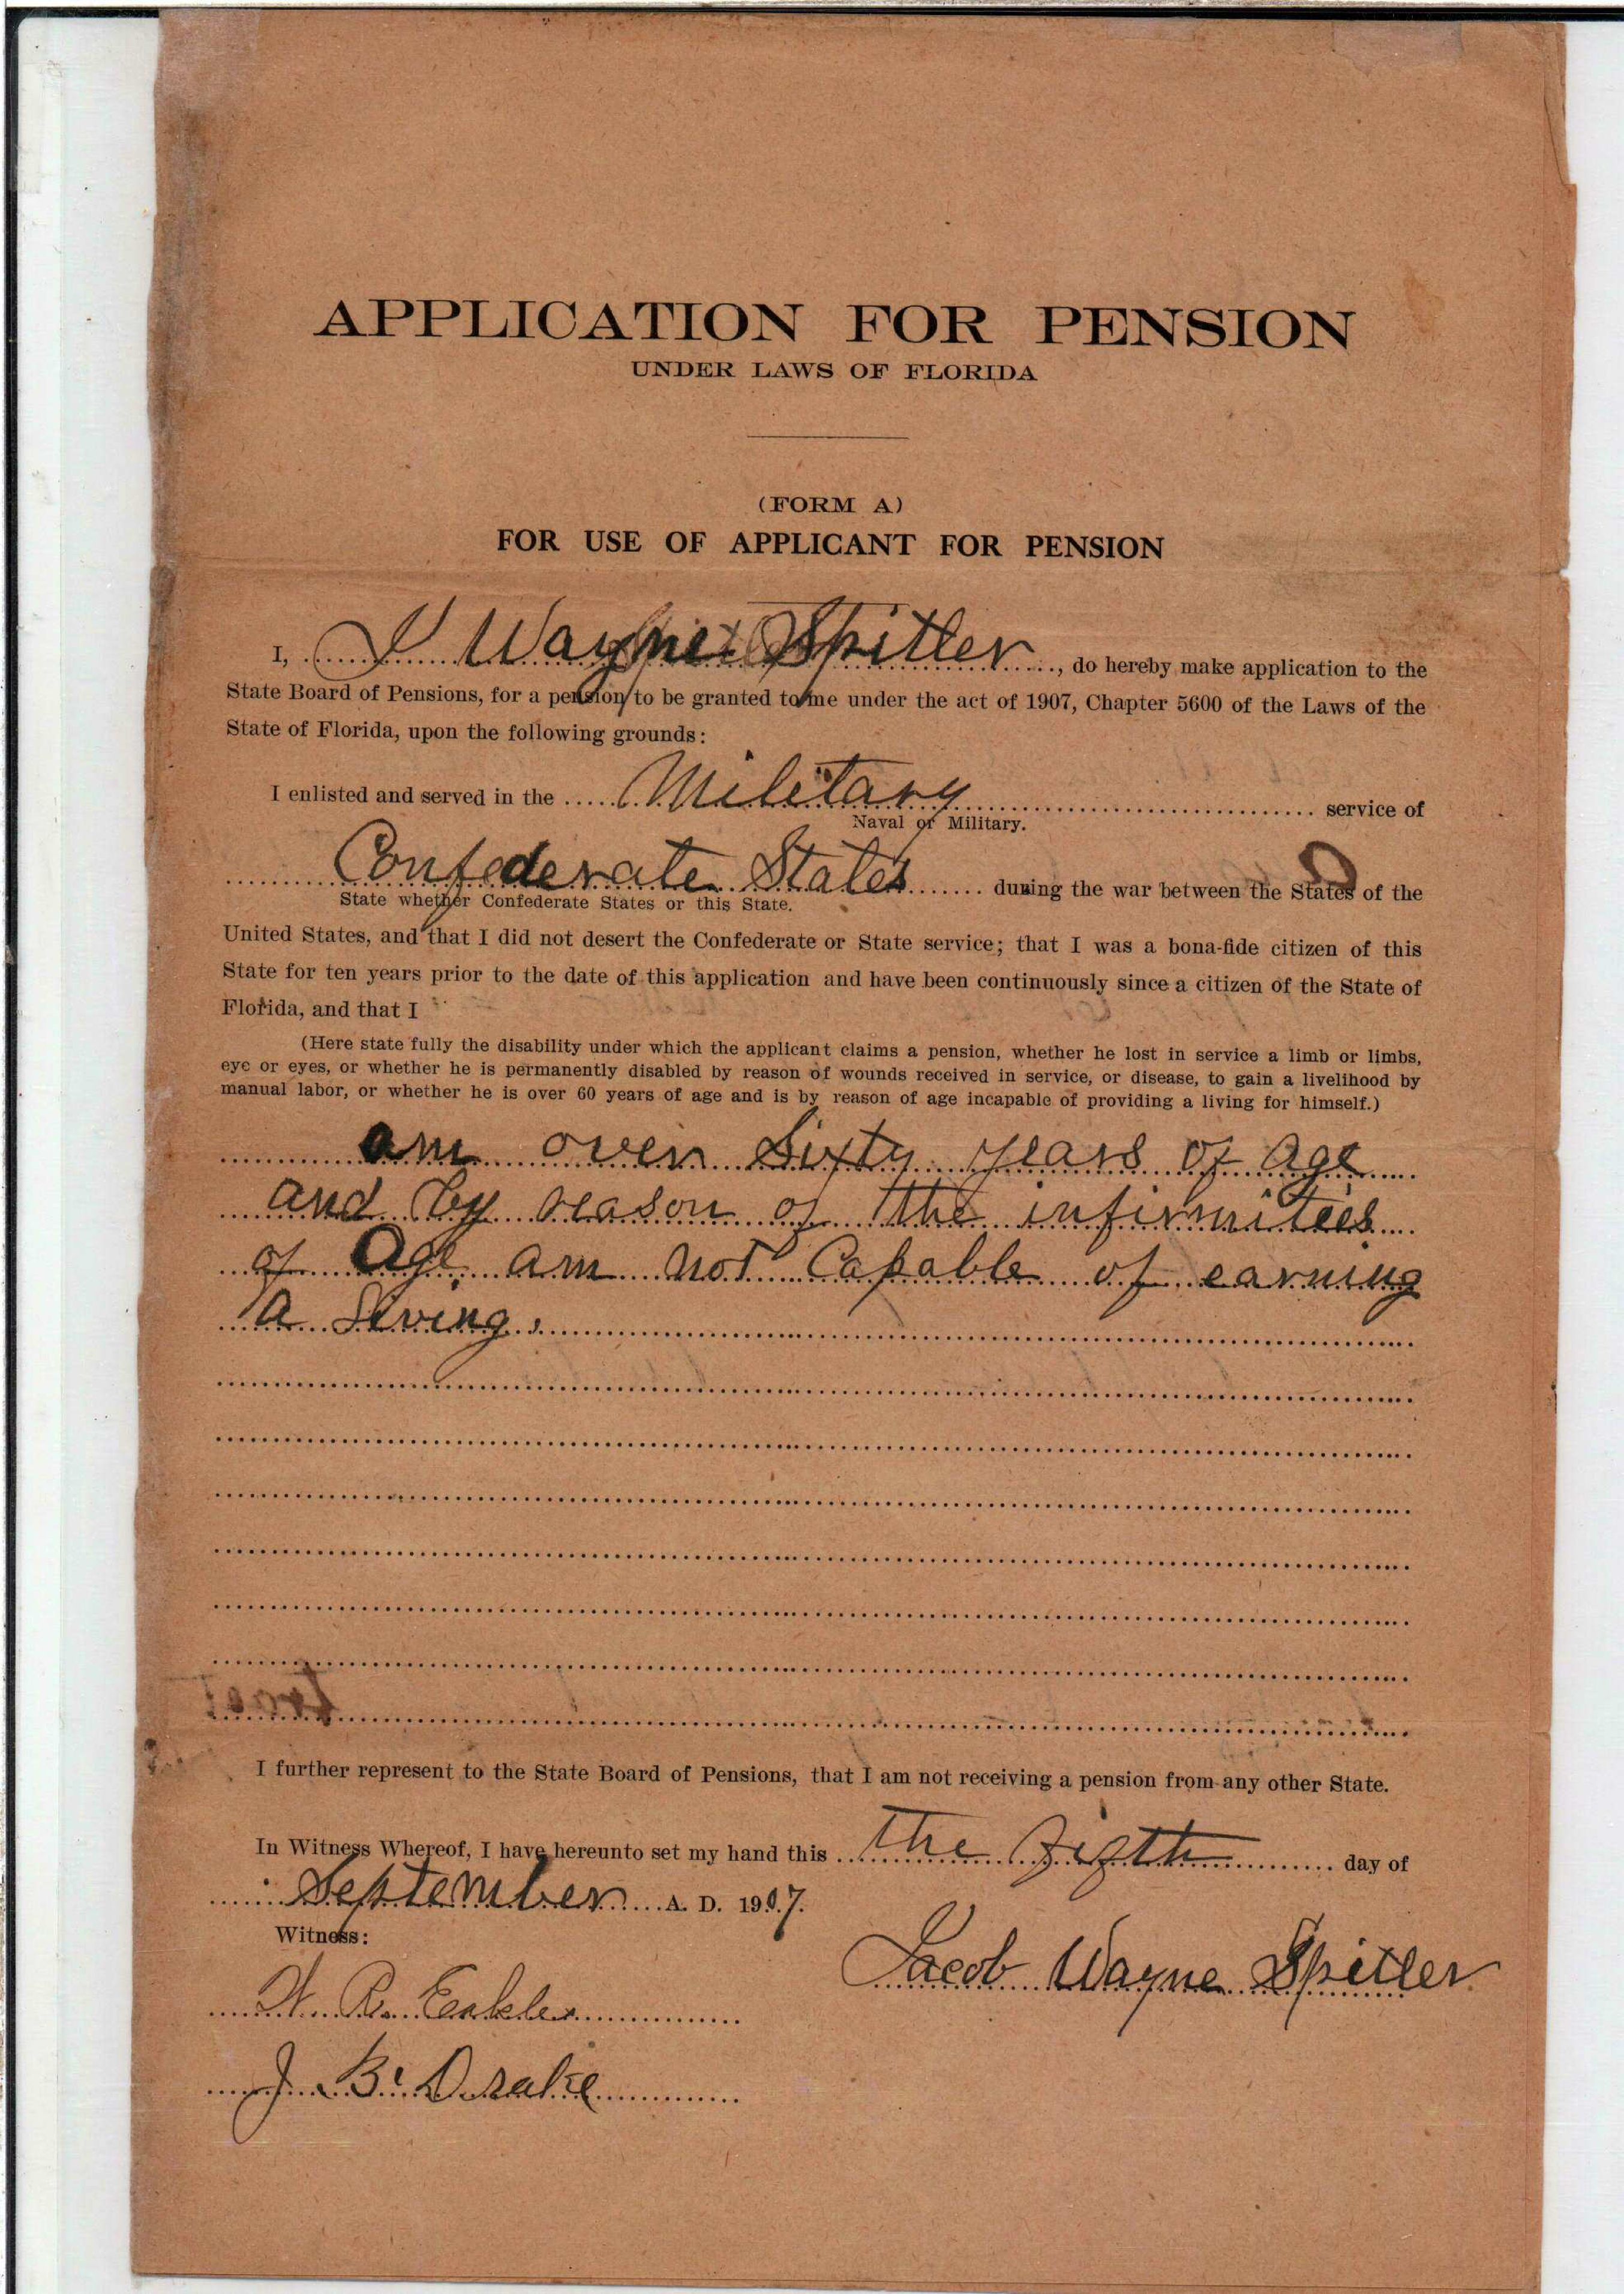 APPLICATION FOR PENSION
UNDER LAWS OF FLORIDA
(FORM A)
FOR USE OF APPLICANT FOR PENSION
I, J Wayne Spitler, do hereby make application to the
State Board of Pensions, for a pension to be granted to me under the act of 1907, Chapter 5600 of the Laws of the
State of Florida, upon the following grounds:
I enlisted and served in the Military service of
Naval or Military.
Confederate States during the war between the States of the
State whether Confederate States or this State.
United States, and that I did not desert the Confederate or State service; that I was a bona-fide citizen of this
State for ten years prior to the date of this application and have been continuously since a citizen of the State of
Florida, and that I
(Here state fully the disability under which the applicant claims a pension, whether he lost in service a limb or limbs,
eye or eyes, or whether he is permanently disabled by reason of wounds received in service, or disease, to gain a livelihood by
manual labor, or whether he is over 60 years of age and is by reason of age incapable of providing a living for himself.)
am over Sixty years of age
and by reason of the infirmities
of Age am not Capable of earning
a living.
I further represent to the State Board of Pensions, that I am not receiving a pension from any other State.
In Witness Whereof, I have hereunto set my hand this the day of
September A. D. 1907.
Witness:
Jacob Wayne Spitler
R. Eakler
J. B. Drake